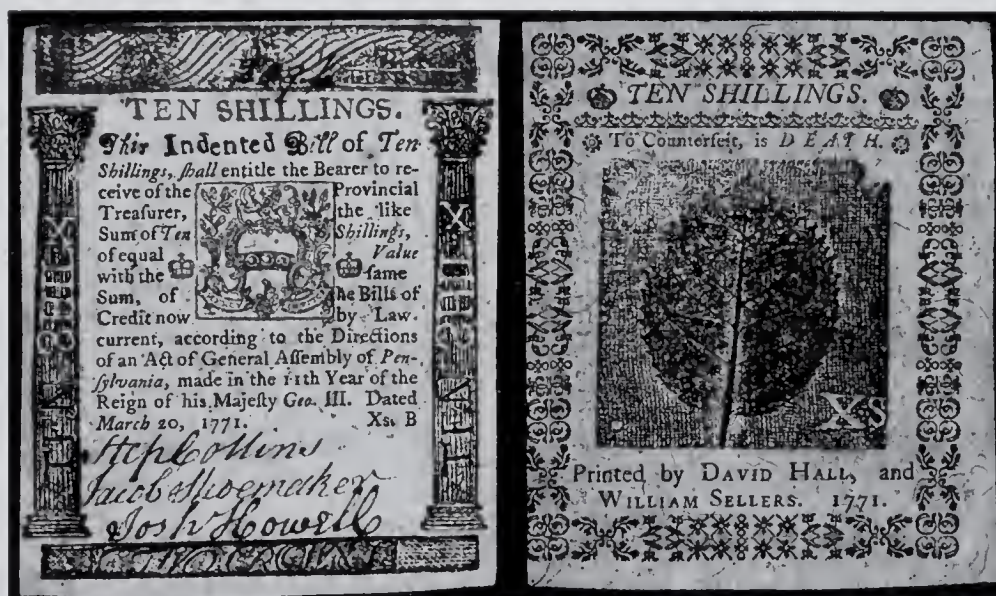 TEN SHILLINGS.
This Indented Bill of Ten
Shillings, ſhall entitle the Bearer to re-
ceive of the Provincial
Treaſurer, the like
Sum of Ten Shillings,
of equal Value
with the ſame
Sum, of he Bills of
Credit now by Law
current, according to the Directions
of an Act of General Aſſembly of Pen-
ſylvania, made in the 11th Year of the
Reign of his Majeſty Geo. III. Dated
March 20, 1771. Xs. B
Step Collins
Jacob Shoemaker
Josh Howell
X
X
TEN SHILLINGS.
To Counterfeit, is DEATH.
Xs
Printed by DAVID HALL, and
WILLIAM SELLERS. 1771.